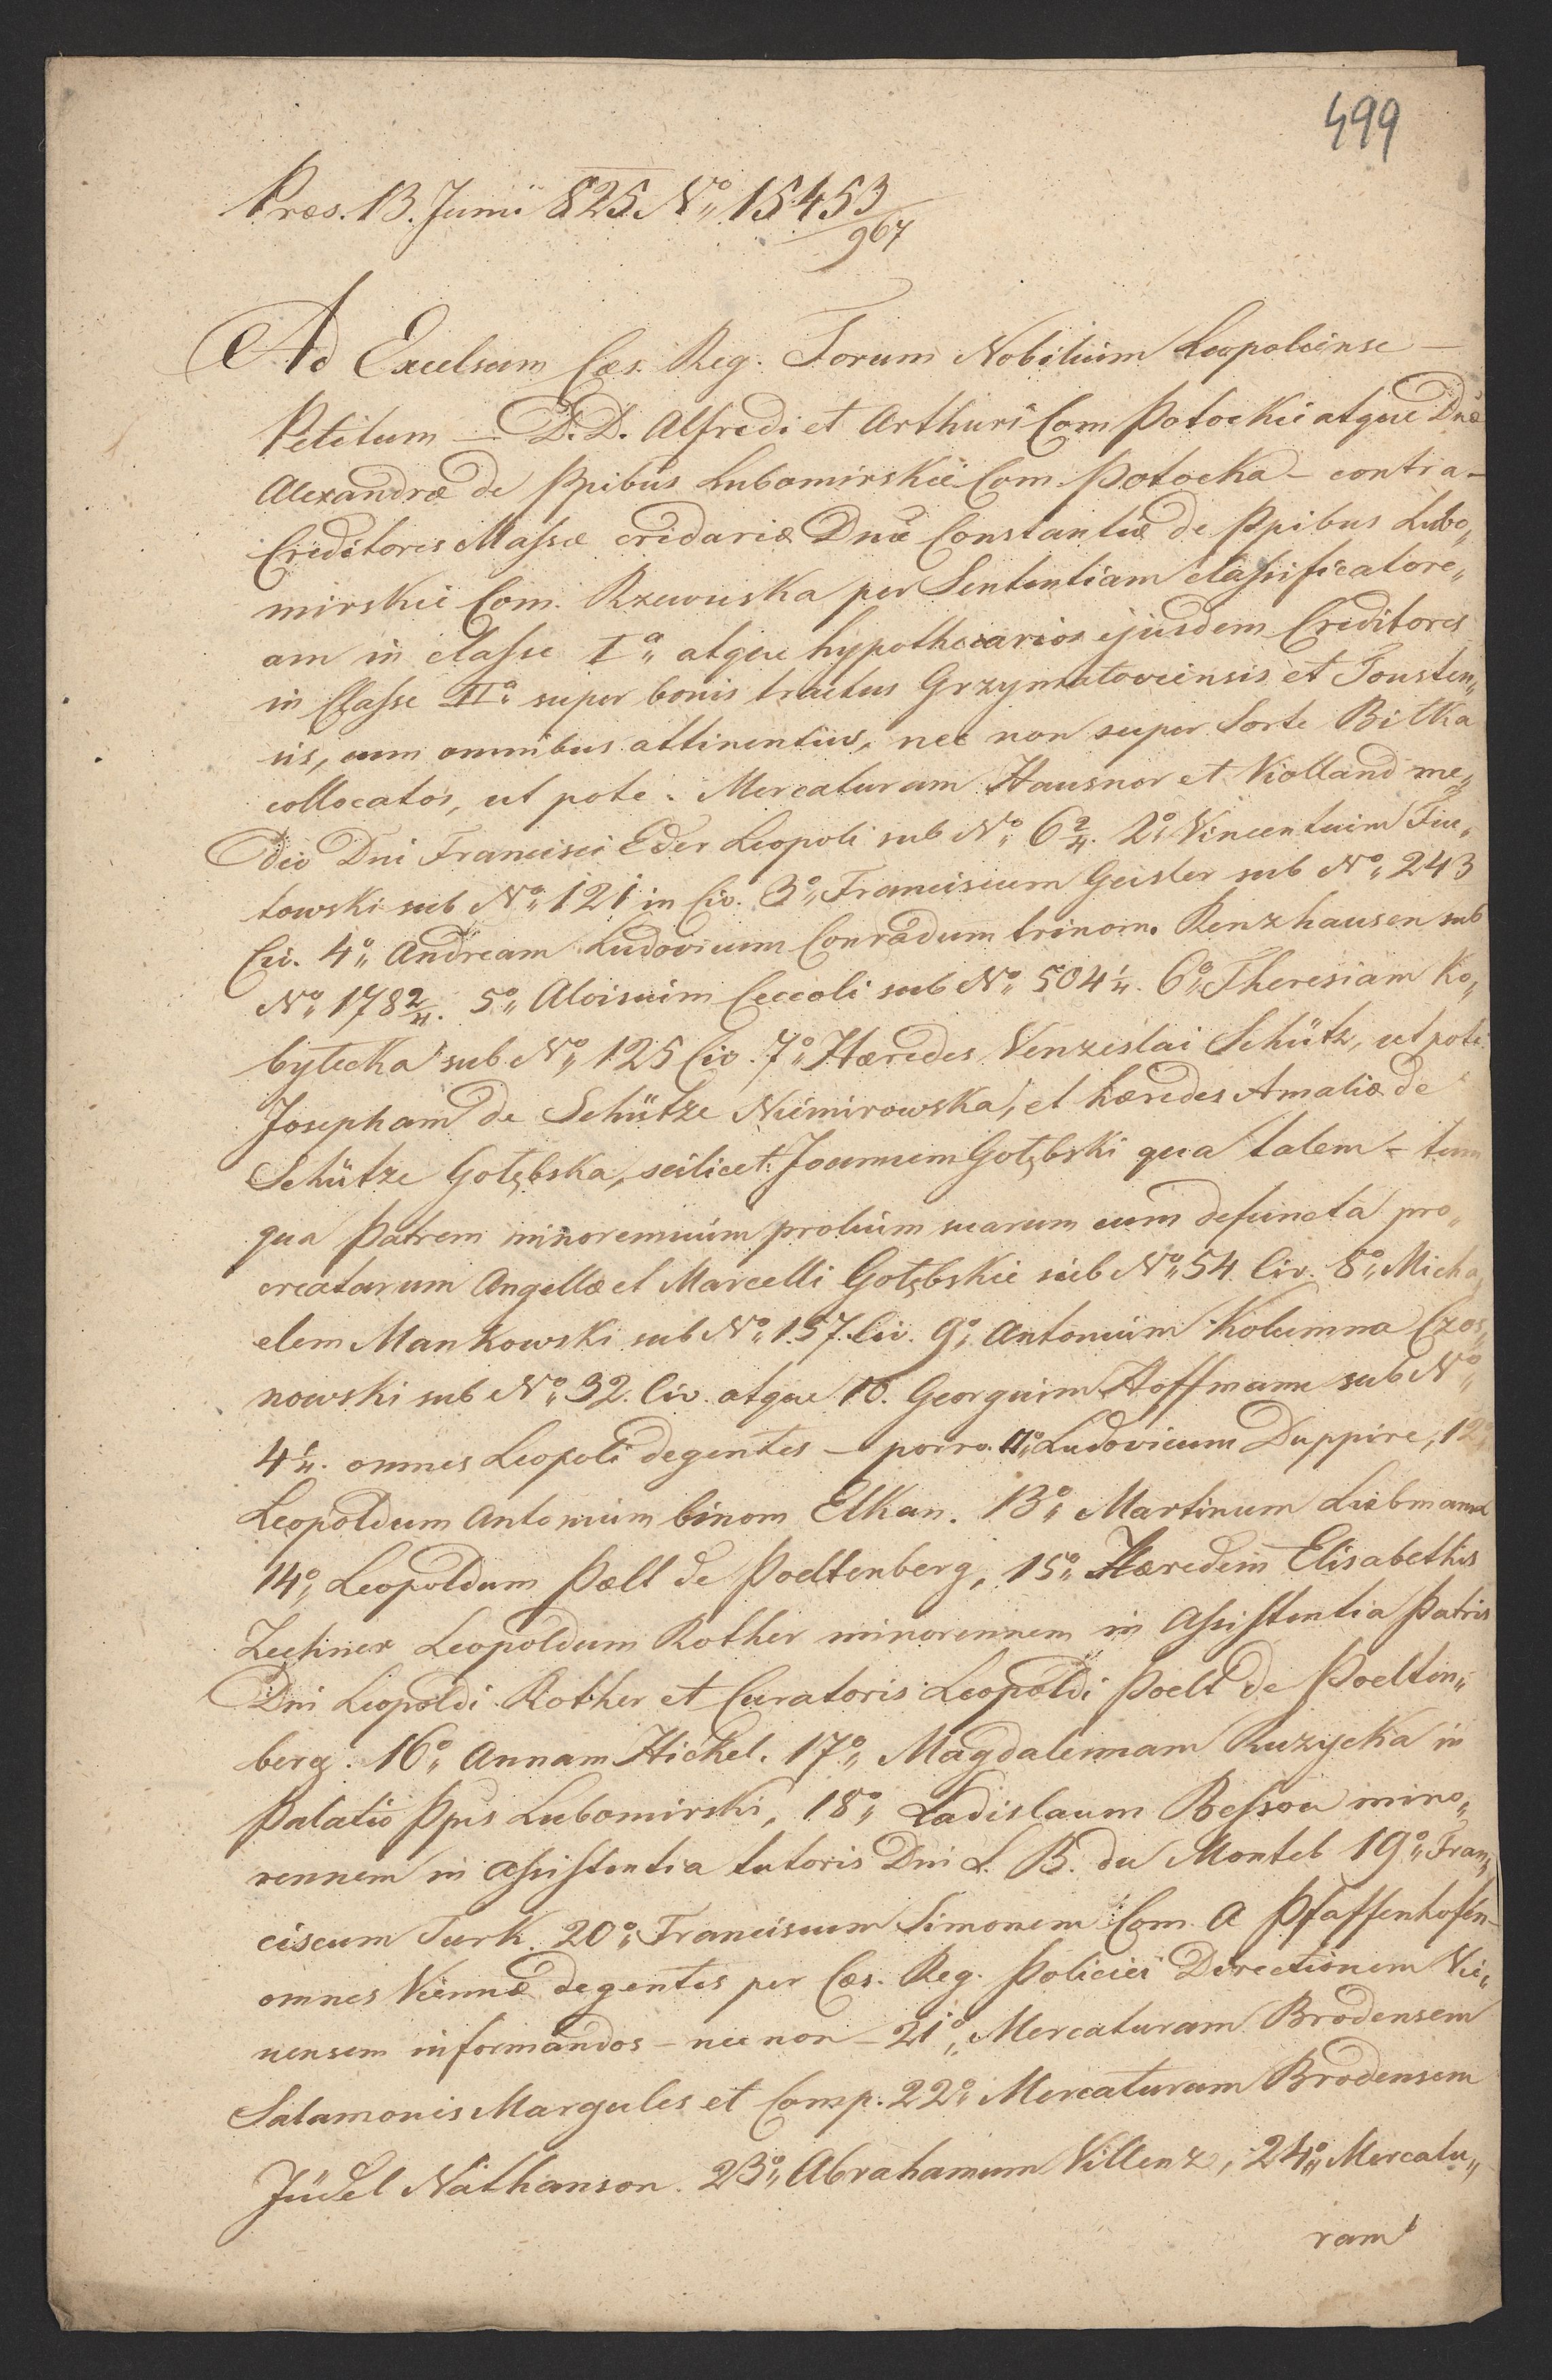 499
Præs. 13. Junii 825 Nº„ 15453/967
Ad Excelsum Cæs. Reg. Forum Nobilium Leopoliense —
Petitum — D.D. Alfredi et Arthuri Com Potockie atque Dnæ
Alexandræ de Ppibus Lubomirskie Com. Potocka — contra —
Creditores Massæ cridariæ Dnæ Constantiæ de Ppibus Lubo„
mirskie Com. Rzewuska per Sententiam classificatore„
am in classe Iª„ atque hypothecarios ejusdem Creditores
in Classe IIª„ super bonis tractus Grzymałoviensis et Tousten„
sis, cum omnibus attinentiis, nec non super Sorte Bitka
collocatos, ut pote. Mercaturam Hausner et Violland me„
dio Dni Francisci Eder Leopoli sub Nº„ 6 2/4. 2º„ Vincentium
towski sub Nº„ 121 in Civ. 3º„ Franciscum Geisler sub Nº„ 243
Civ. 4º„ Andream Ludovicum Conradum trinom. Renzhausen sub
Nº„ 178 2/4. 5º„ Aloisium Ceccoli sub Nº„ 504 1/4. 6º„ Theresiam Ko„
bytecka sub Nº„ 125 Civ. 7º„ Hæredes Venzeslai Schütz, ut pote
Josepham de Schütze Niemirowska, et hæredes Amaliæ de
Schütze Gołębska, scilicet: Joannem Gołębski qua talem - tum
qua Patrem minorennium prolium suarum cum defuncta pro„
creatarum Angellæ et Marcelli Gołębskie sub Nº„ 54 Civ. 8º„ Micha„
elem Mankowski sub Nº„ 157 Civ. 9º„ Antonium Kolumna Czos„
nowski sub Nº„ 32. Civ. atque 10. Georgium Hoffmann sub Nº„
4 1/4. omnes Leopoli degentes — porro. 11º„ Ludovicum Duppire, 12º„
Leopoldum Antonium binom Elkan. 13º„ Martinum Liebmann
14º„ Leopoldum Pælt de Poeltenberg, 15º„ Hæredem Elisabethis
Zechner Leopoldum Rother minorennem in Assistentia Patris
Dni Leopoldi Rother et Curatoris Leopoldi Poelt de Poelten„
berg. 16º„ Annam Hickel. 17º„ Magdalennam Ruzycka in
Palatio Ppis Lubomirski, 18º„ Ladislaum Besson mino„
rennem in assistentia tutoris Dni L. B. du Montet 19º„ Fran„
ciscum Turk. 20º„ Franciscum Simonem Com. A Pfaffenhofen —
omnes Viennæ degentes per Cæs. Reg. Policiei Directionem Vie„
nensem informandos — nec non — 21º„ Mercaturam Brodensem
Salamonis Margules et Comp. 22º„ Mercaturam Brodensem
Jüdel Nathanson. 23º„ Abrahamum Villenz, 24º„ Mercatu„
ram